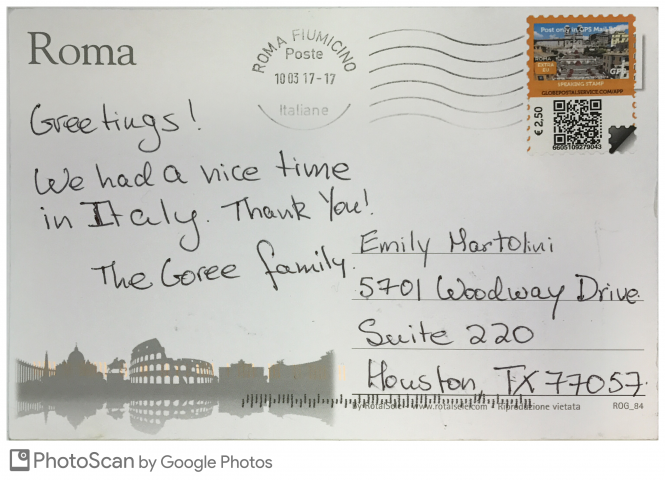 Roma
ROMA FIUMICINO
Poste
10 03 17-17
Italiane
Post only in GPS Mail Box
ROMA
EXTRA
EU
SPEAKING STAMP
GLOBEPOSTALSERVICE.COM/APP
€ 2,50
6605109279043
Greetings!
We had a nice time
in Italy. Thank You!
The Goree family.
Emily Martolini
5701 Woodway Drive
Suite 220
Houston, TX 77057
by RotalSele - www.rotalsele.com - Riproduzione vietata
ROG_84
PhotoScan by Google Photos